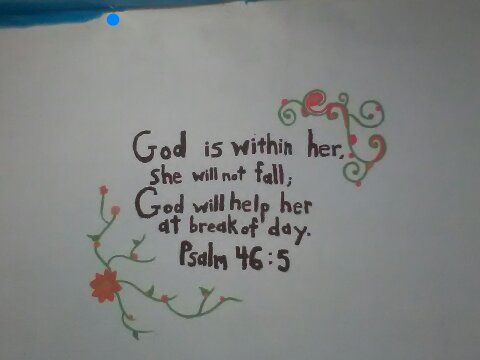 God is within her,
she will not fall;
God will help her
at break of day.
Psalm 46:5